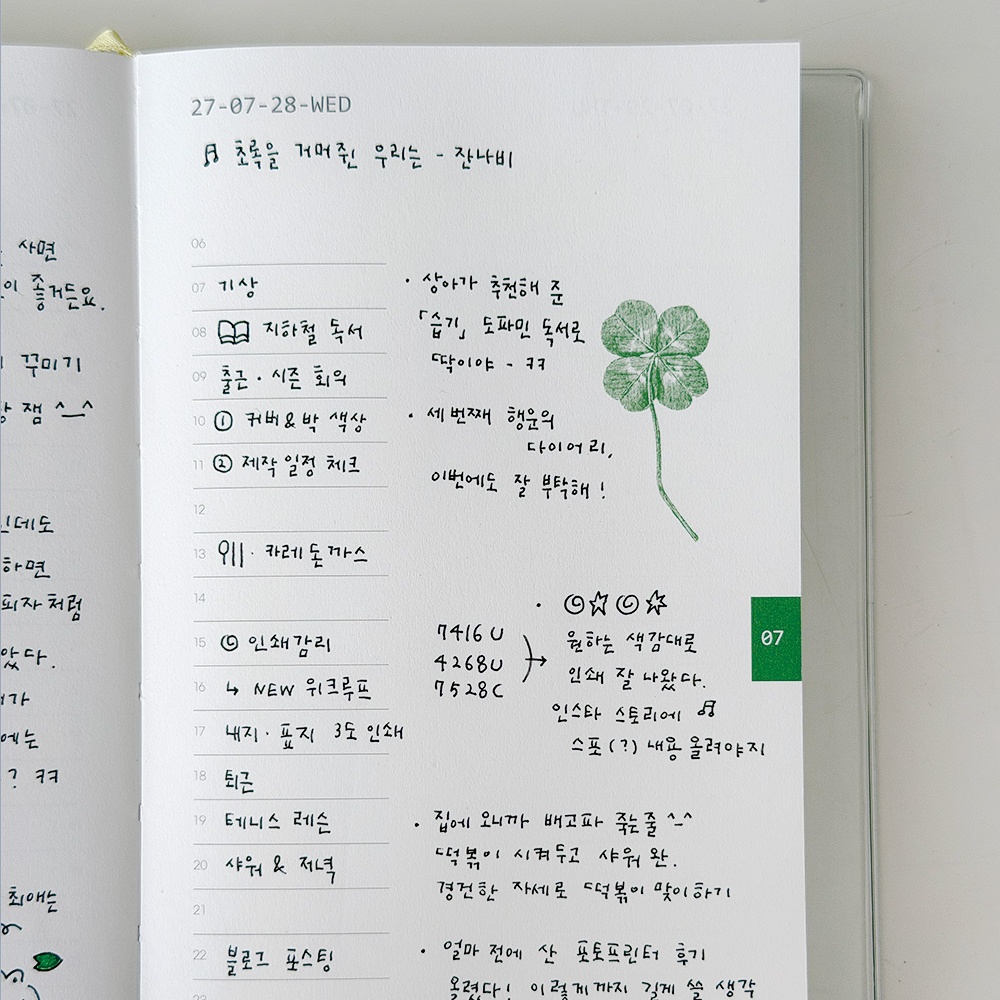 27-07-28-WED
초록을 거머쥔 우리는 - 잔나비
사면
이 좋거든요.
꾸미기
잼 ^_^
인데도
하면
피자처럼
았다.
에는
? ㅋㅋ
최애는
06
07 기상
08 지하철 독서
09 출근·시즌 회의
10 ① 커버&박 색상
11 ② 제작일정 체크
12
13 · 카레돈까스
14
15 인쇄감리
16 ↳ NEW 위크루프
17 내지·표지 3도 인쇄
18 퇴근
19 테니스 레슨
20 샤워 & 저녁
21
22 블로그 포스팅
23
· 상아가 추천해 준
「습기」 도파민 독서로
딱이야 - ㅋㅋ
· 세번째 행운의
다이어리,
이번에도 잘 부탁해!
7416U
4268U
7528C
→
·
원하는 색감대로
인쇄 잘 나왔다.
인스타 스토리에
스포(?) 내용 올려야지
07
· 집에 오니까 배고파 죽는줄 ^_^
떡볶이 시켜두고 샤워 완.
경건한 자세로 떡볶이 맞이하기
· 얼마 전에 산 포토프린터 후기
올렸다! 이렇게까지 길게 쓸 생각